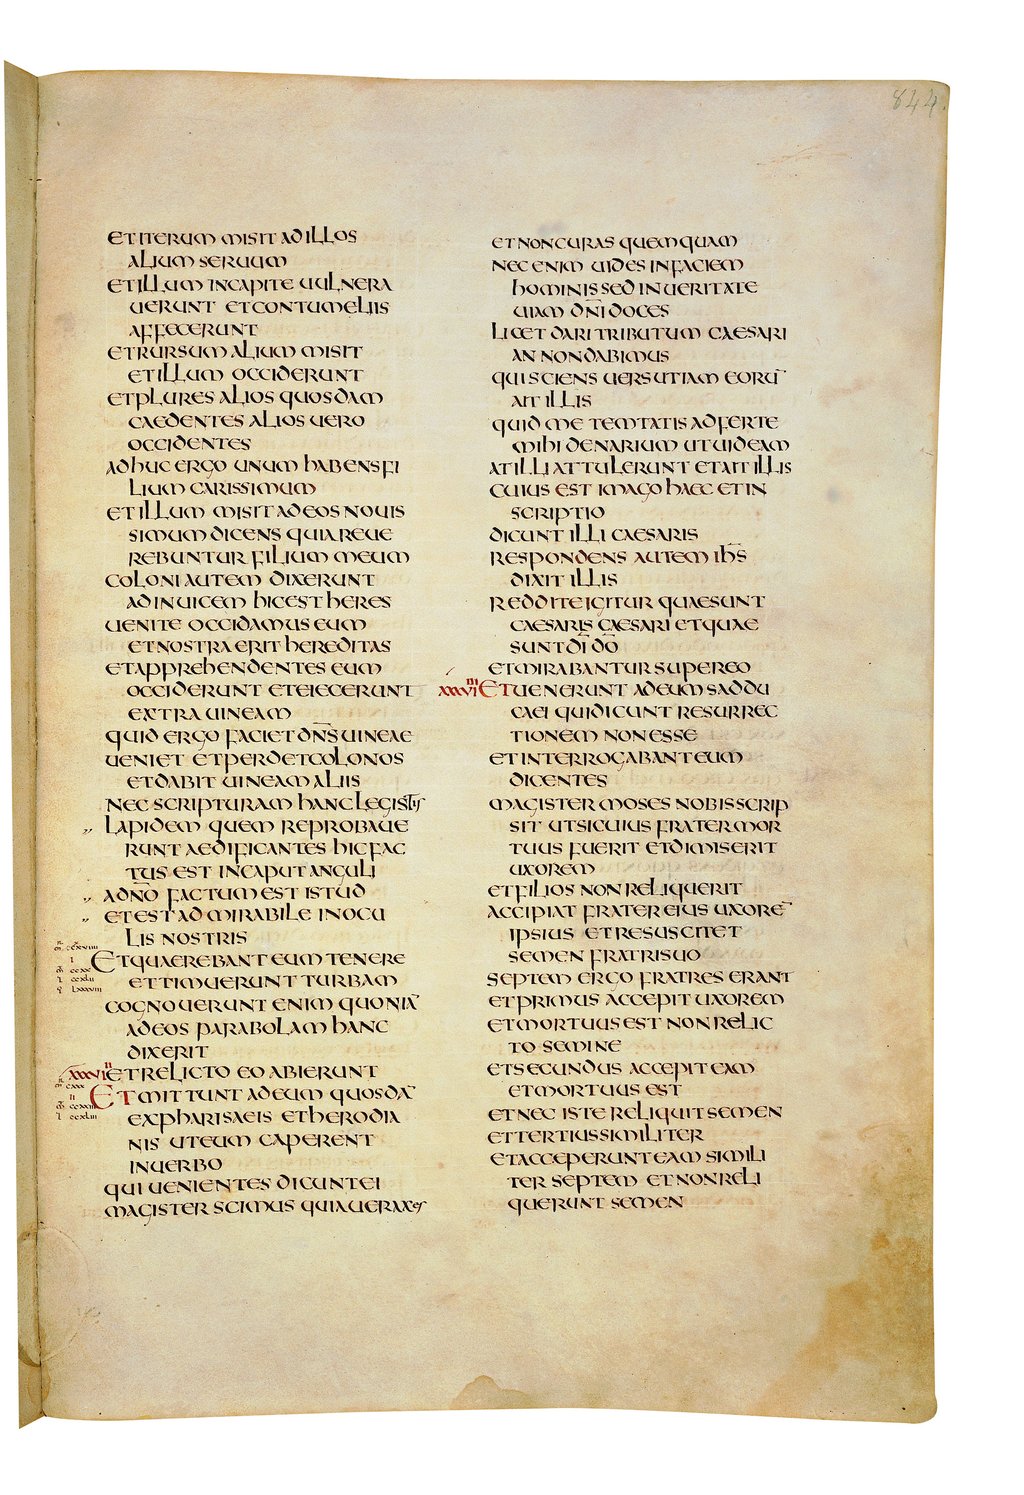 844.
ET ITERUM MISIT AD ILLOS
ALIUM SERUUM
ET ILLUM IN CAPITE UULNERA
UERUNT ET CONTUMELIIS
AFFECERUNT
ET RURSUM ALIUM MISIT
ET ILLUM OCCIDERUNT
ET PLURES ALIOS QUOSDAM
CAEDENTES ALIOS UERO
OCCIDENTES
ADHUC ERGO UNUM HABENS FI
LIUM CARISSIMUM
ET ILLUM MISIT AD EOS NOUIS
SIMUM DICENS QUIA REUE
REBUNTUR FILIUM MEUM
COLONI AUTEM DIXERUNT
AD INUICEM HIC EST HERES
UENITE OCCIDAMUS EUM
ET NOSTRA ERIT HEREDITAS
ET APPREHENDENTES EUM
OCCIDERUNT ET EIECERUNT
EXTRA UINEAM
QUID ERGO FACIET DN̄S UINEAE
UENIET ET PERDET COLONOS
ET DABIT UINEAM ALIIS
NEC SCRIPTURAM HANC LEGISTIS
LAPIDEM QUEM REPROBAUE
RUNT AEDIFICANTES HIC FAC
TUS EST IN CAPUT ANGULI
A DN̄O FACTUM EST ISTUD
ET EST ADMIRABILE IN OCU
LIS NOSTRIS
ET QUAEREBANT EUM TENERE
ET TIMUERUNT TURBAM
COGNOUERUNT ENIM QUONIĀ
AD EOS PARABOLAM HANC
DIXERIT
XXXVII ET RELICTO EO ABIERUNT
ET MITTUNT AD EUM QUOSDĀ
EX PHARISAEIS ET HERODIA
NIS UT EUM CAPERENT
IN UERBO
QUI UENIENTES DICUNT EI
MAGISTER SCIMUS QUIA UERAX ES
ET NON CURAS QUEMQUAM
NEC ENIM UIDES IN FACIEM
HOMINIS SED IN UERITATE
UIAM DN̄I DOCES
LICET DARI TRIBUTUM CAESARI
AN NON DABIMUS
QUI SCIENS UERSUTIAM EORŪ
AIT ILLIS
QUID ME TEMTATIS ADFERTE
MIHI DENARIUM UT UIDEAM
AT ILLI ATTULERUNT ET AIT ILLIS
CUIUS EST IMAGO HAEC ET IN
SCRIPTIO
DICUNT ILLI CAESARIS
RESPONDENS AUTEM IH̄S
DIXIT ILLIS
REDDITE IGITUR QUAE SUNT
CAESARIS CAESARI ET QUAE
SUNT DĪ DŌ
ET MIRABANTUR SUPER EO
XXXVIII ET UENERUNT AD EUM SADDU
CAEI QUI DICUNT RESURREC
TIONEM NON ESSE
ET INTERROGABANT EUM
DICENTES
MAGISTER MOSES NOBIS SCRIP
SIT UT SI CUIUS FRATER MOR
TUUS FUERIT ET DIMISERIT
UXOREM
ET FILIOS NON RELIQUERIT
ACCIPIAT FRATER EIUS UXORĒ
IPSIUS ET RESUSCITET
SEMEN FRATRI SUO
SEPTEM ERGO FRATRES ERANT
ET PRIMUS ACCEPIT UXOREM
ET MORTUUS EST NON RELIC
TO SEMINE
ET SECUNDUS ACCEPIT EAM
ET MORTUUS EST
ET NEC ISTE RELIQUIT SEMEN
ET TERTIUS SIMILITER
ET ACCEPERUNT EAM SIMILI
TER SEPTEM ET NON RELI
QUERUNT SEMEN